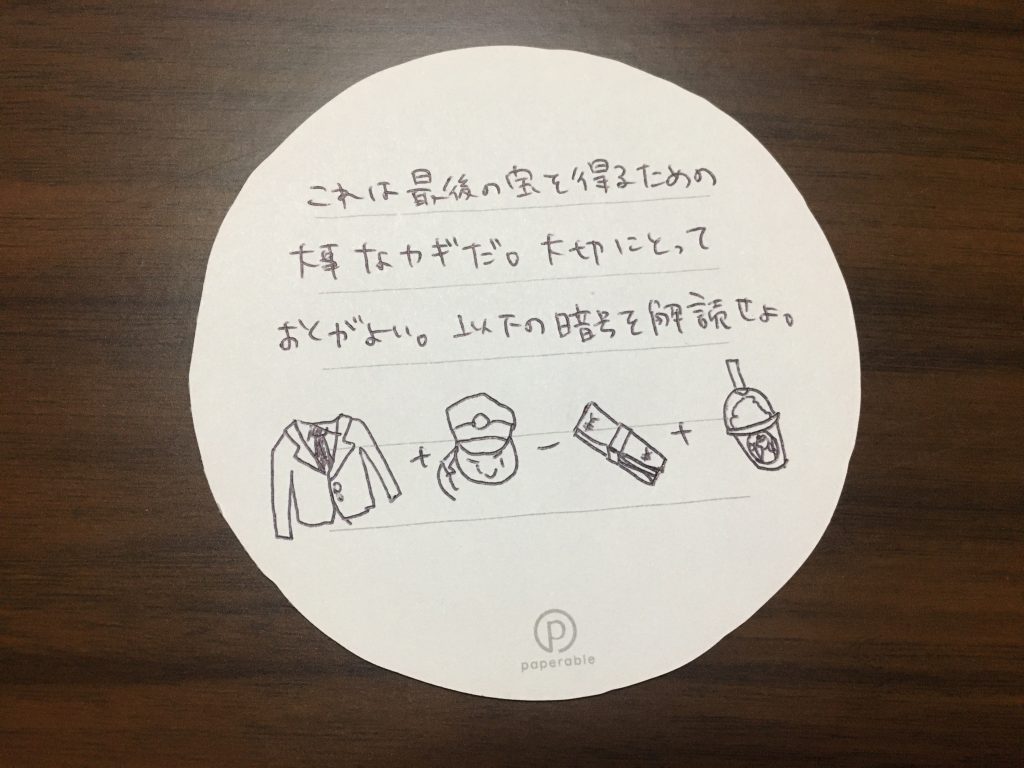 これは最後の宝を得るための
大事なカギだ。大切にとって
おくがよい。以下の暗号を解読せよ。
+ − +
paperable